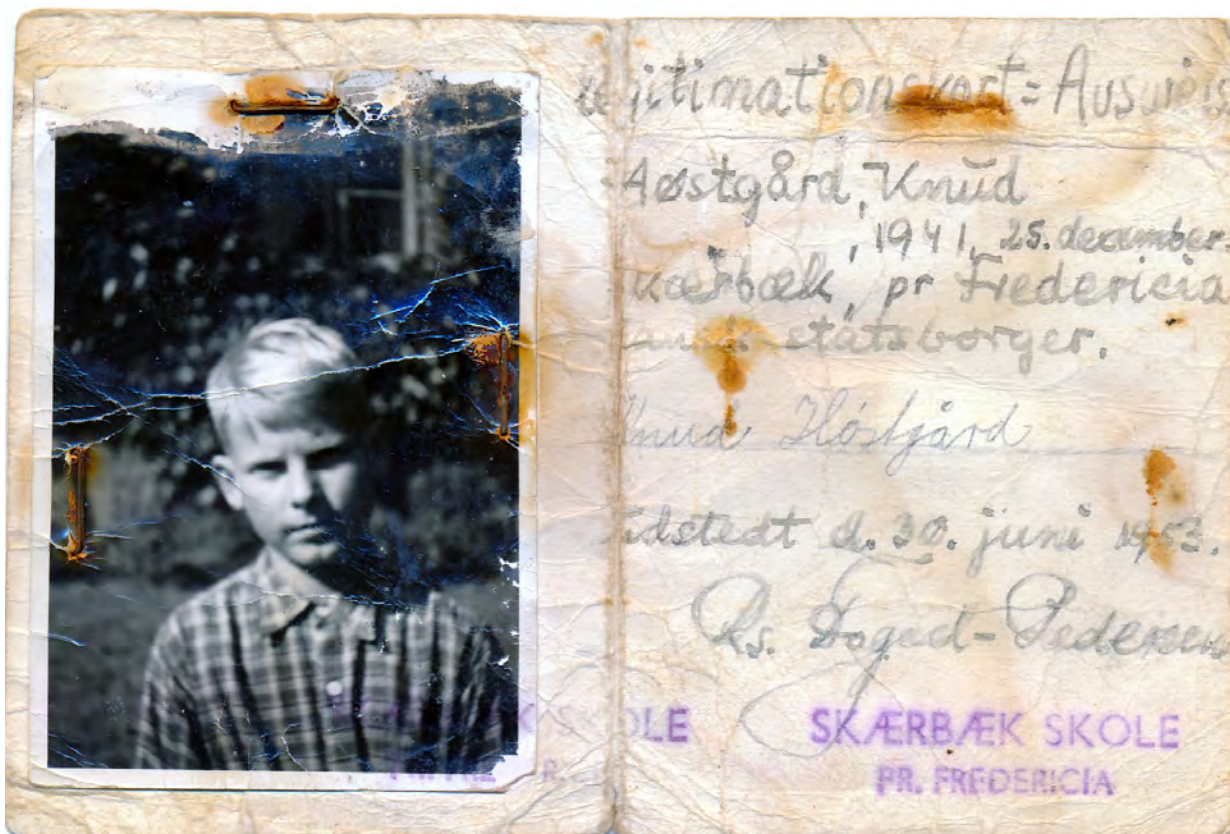 Legitimationskort = Ausweis
Høstgård, Knud
, 1941, 25. december
Skærbæk, pr Fredericia
statsborger.
Knud Høstgård
d. 30. juni 1953.
Pedersen
SKÆRBÆK SKOLE
PR. FREDERICIA
K SKOLE